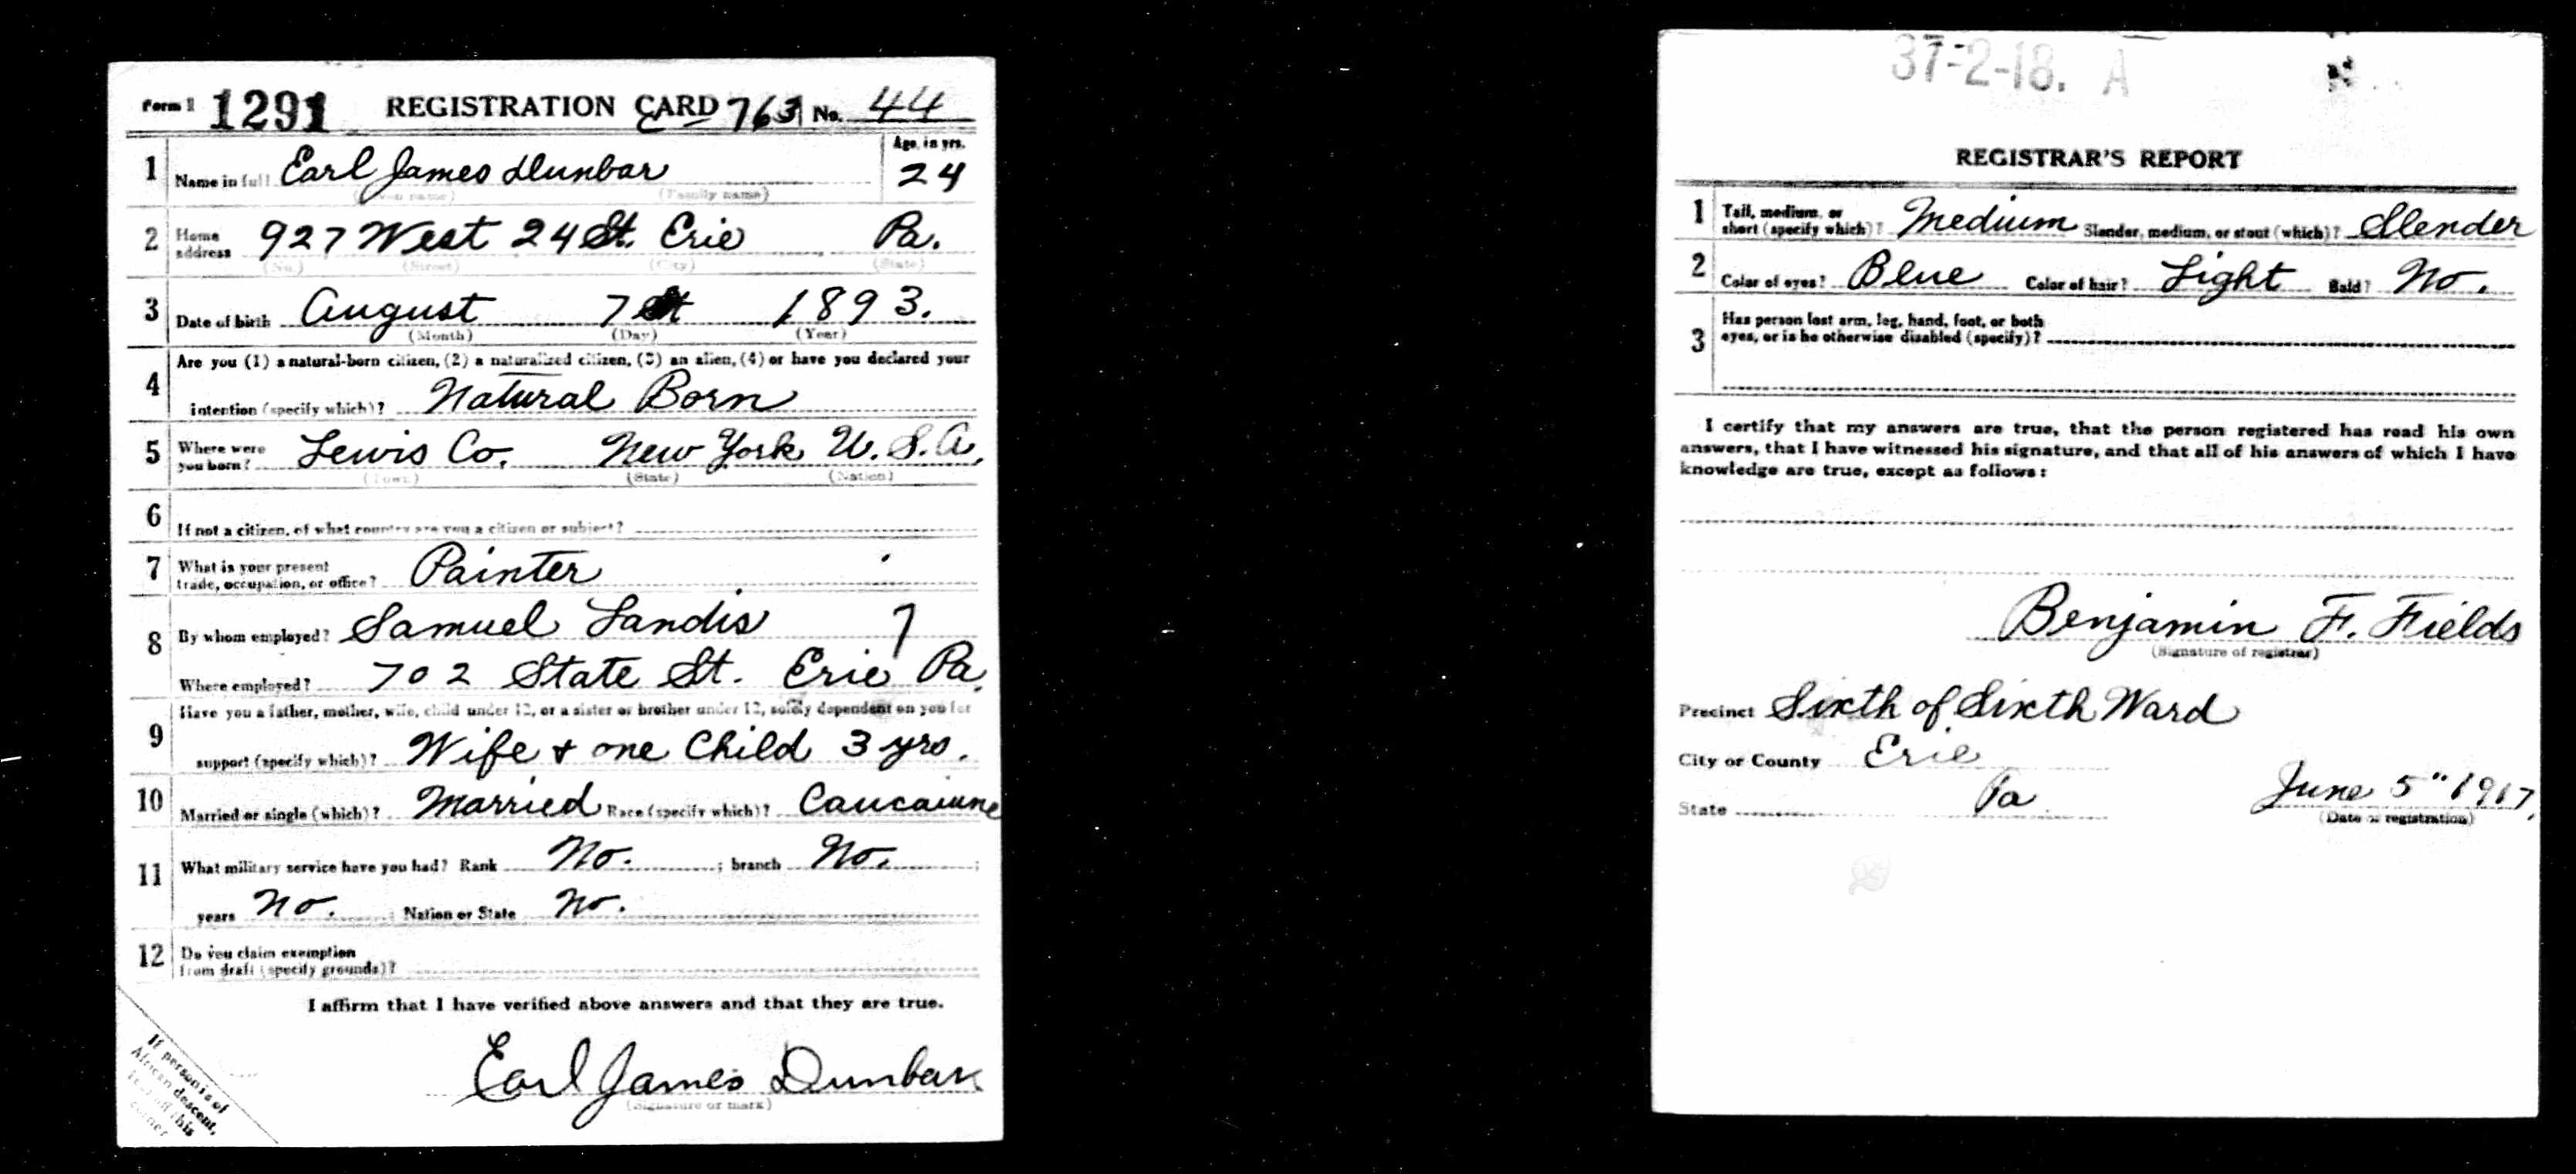 Form 1 1291 REGISTRATION CARD 763 No. 44
Age, in yrs.
1 Name in full Earl James Dunbar 24
(Given name) (Family name)
2 Home address 927 West 24 St. Erie Pa.
(No.) (Street) (City) (State)
3 Date of birth August 7 1893.
(Month) (Day) (Year)
Are you (1) a natural-born citizen, (2) a naturalized citizen, (3) an alien, (4) or have you declared your
4 intention (specify which)? Natural Born
5 Where were you born? Lewis Co. New York U.S.A.
(Town) (State) (Nation)
6 If not a citizen, of what country are you a citizen or subject?
7 What is your present trade, occupation, or office? Painter
8 By whom employed? Samuel Landis 7
Where employed? 702 State St. Erie Pa.
Have you a father, mother, wife, child under 12, or a sister or brother under 12, solely dependent on you for
9 support (specify which)? Wife & one Child 3 yrs.
10 Married or single (which)? Married Race (specify which)? Caucaiune
11 What military service have you had? Rank No. ; branch No. ;
years No. Nation or State No.
12 Do you claim exemption
from draft (specify grounds)?
I affirm that I have verified above answers and that they are true.
Earl James Dunbar
(Signature or mark)
If person is of
African descent,
tear off this
corner
37-2-18. A
REGISTRAR'S REPORT
1 Tall, medium, or short (specify which)? Medium Slender, medium, or stout (which)? Slender
2 Color of eyes? Blue Color of hair? Light Bald? No.
3 Has person lost arm, leg, hand, foot, or both
eyes, or is he otherwise disabled (specify)?
I certify that my answers are true, that the person registered has read his own
answers, that I have witnessed his signature, and that all of his answers of which I have
knowledge are true, except as follows:
Benjamin F. Fields
(Signature of registrar)
Precinct Sixth of Sixth Ward
City or County Erie
State Pa June 5" 1917.
(Date of registration)